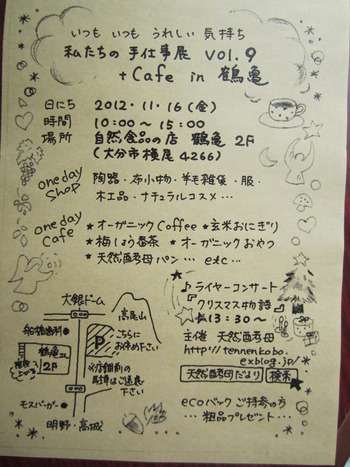 いつも いつも うれしい 気持ち
私たちの 手仕事展 vol.9
+ Cafe in 鶴亀
日にち 2012・11・16(金)
時間 10:00～15:00
場所 自然食品の店 鶴亀 2F
(大分市横尾4266)
one day Shop
陶器・布小物・羊毛雑貨・服・
木工品・ナチュラルコスメ…
one day Cafe
★オーガニックCoffee ★玄米おにぎり
★梅しょう番茶 ★オーガニックおやつ
★天然酵母パン… etc…
大銀ドーム
高尾山
船橋歯科
鶴亀
2F
P
こちらに
お停め下さい
お店前の
駐車はご遠慮
下さい
モスバーガー
明野・高城
♪ライヤーコンサート
『クリスマス物語』
13:30～
主催 天然酵母
http://tennenkobo.
exblog.jp/
天然酵母だより 検索
ecoバックご持参の方
…粗品プレゼント…